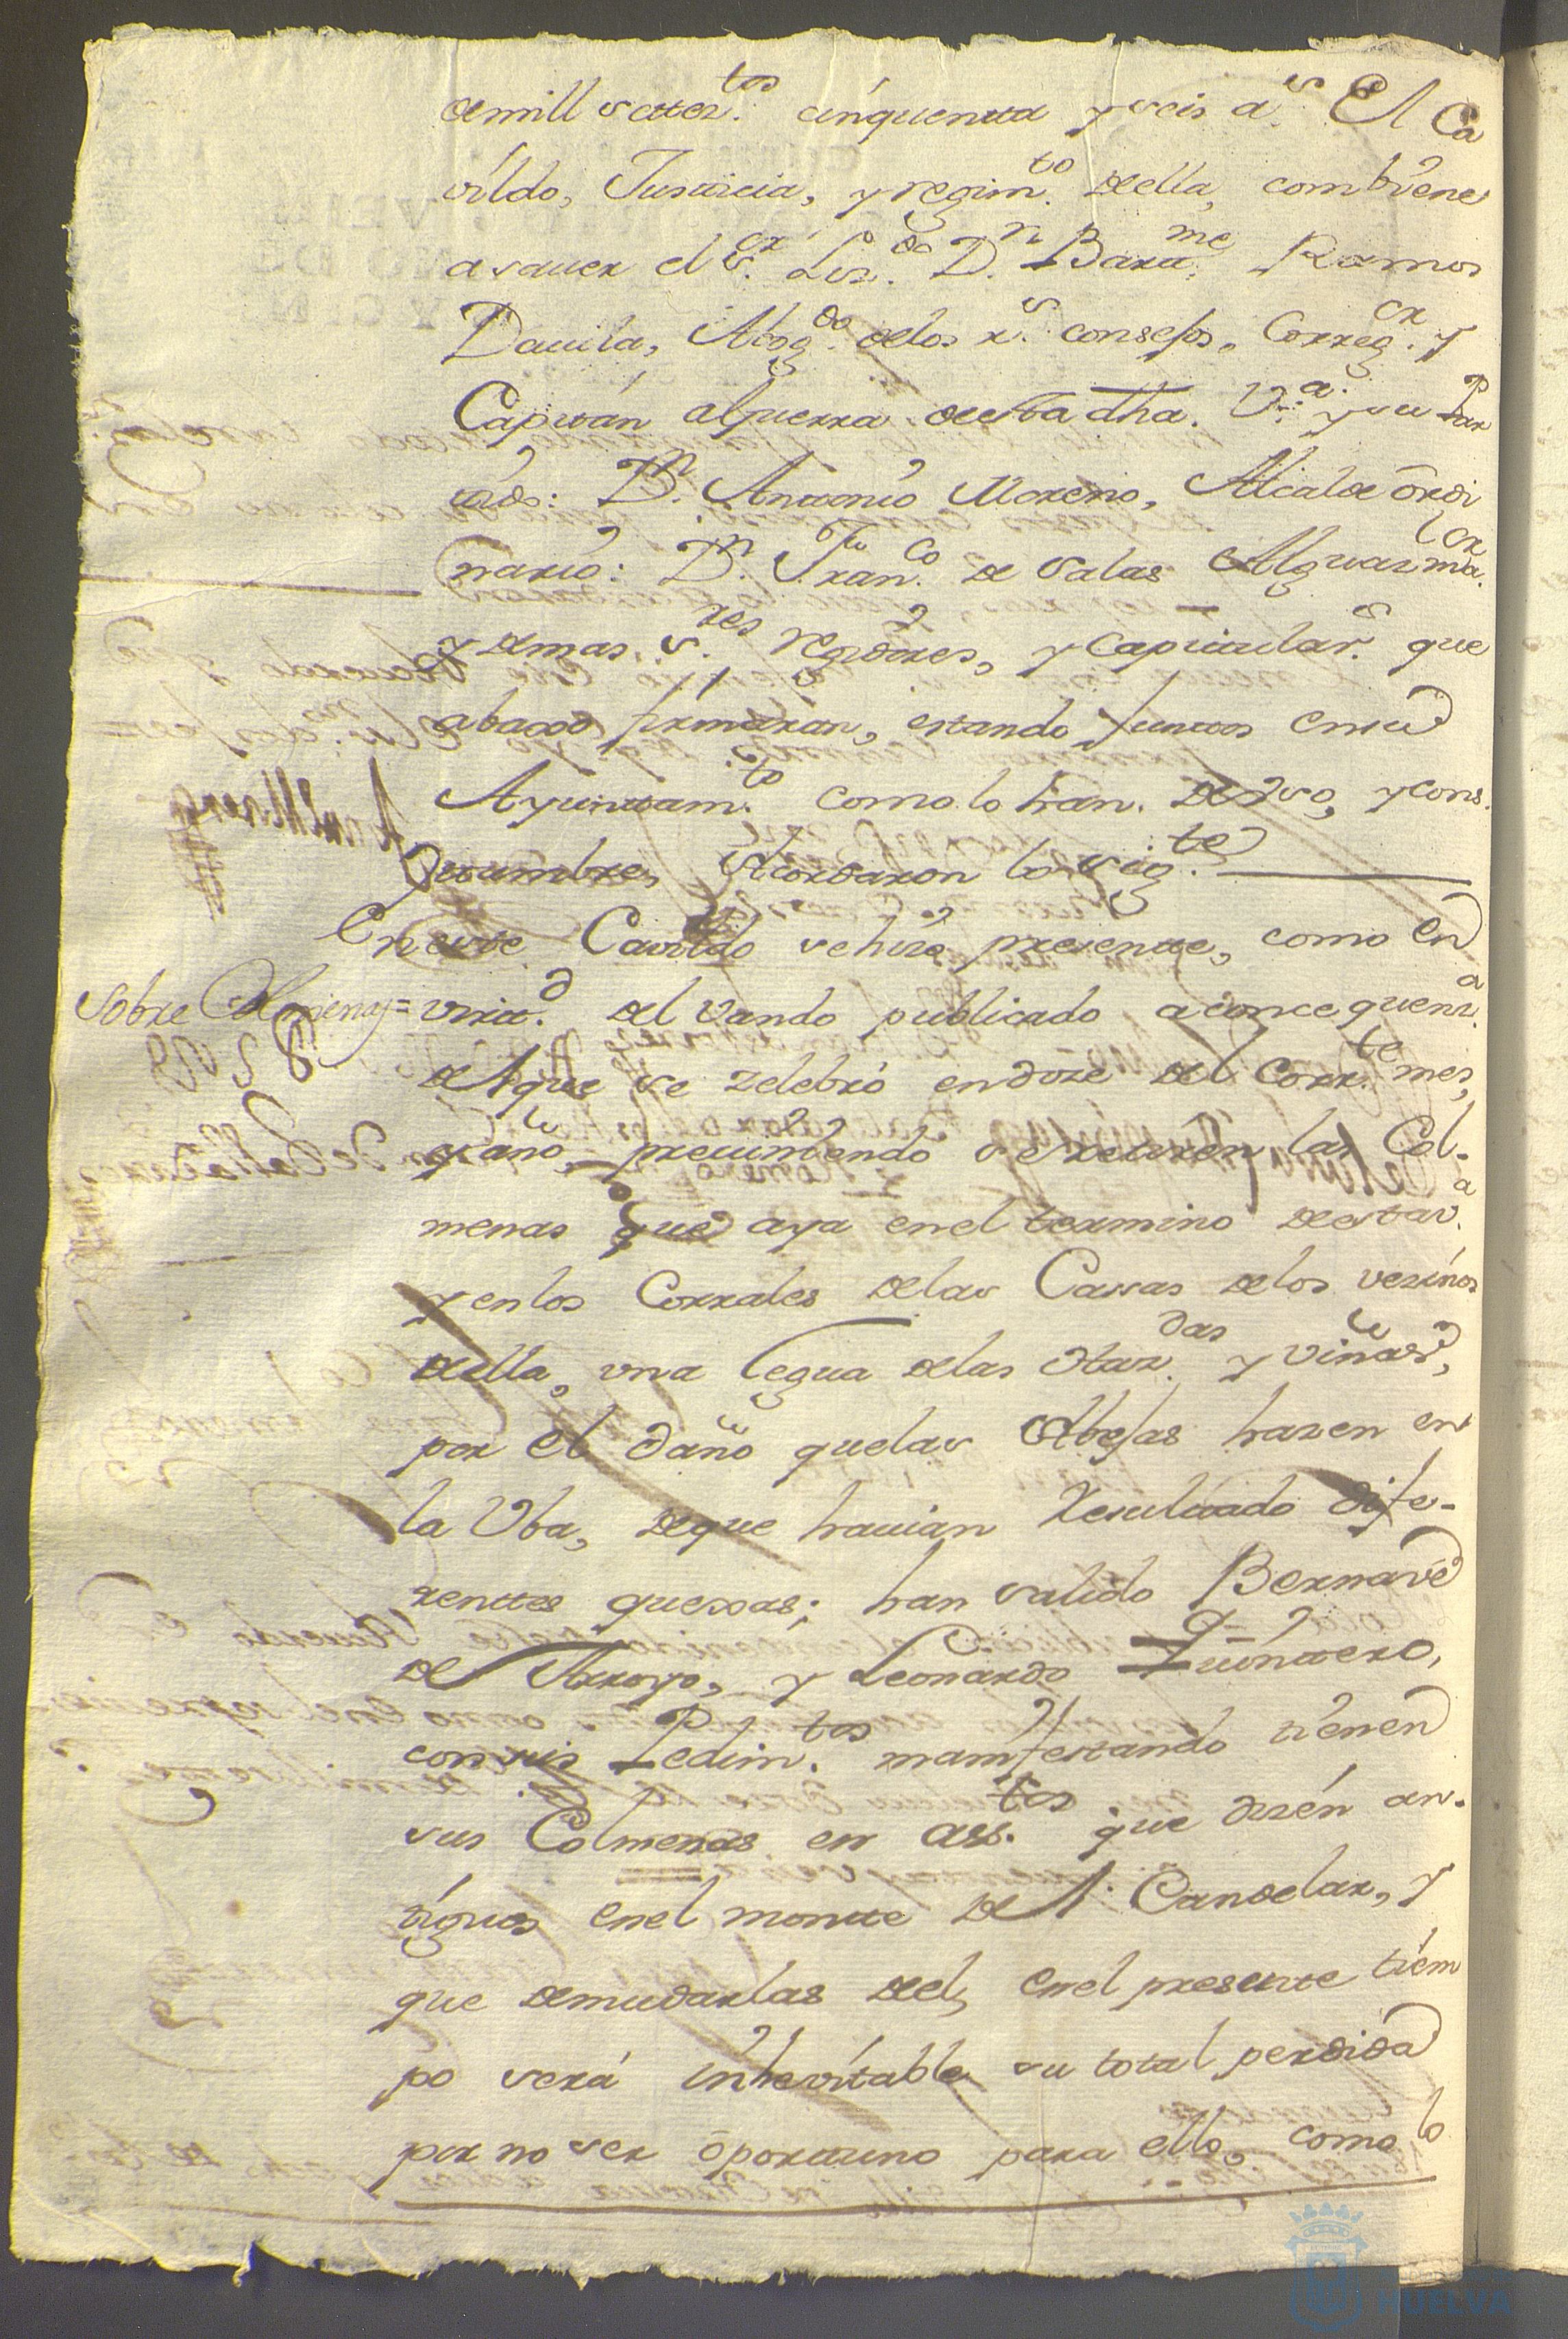 de mill settez.tos cinquentta y seis a.s El Ca
vildo, Justticia, y regim.to della, combiene
a sauer el s.or Liz.do D.n Bartt.me Ramos
Dauila, Abog.do de los r.s consejos, Correg.or y
Capittan a Guerra de esta dha. V.a y su Par
tido: D.n Antonio Moreno, Alcalde ordi
nario: D.n Fran.co de Salas Alguazil ma.or
y demas s.res regidores, y Capitular.s que
abaxo firmaran, estando juntos en su
Ayunttam.to como lo han de vso, y cons.
ttumbre, Acordaron lo sig.te
En este Cavildo se hizo presentte, como en
Sobre Colmenas = virtt.d del Vando publicado a concequenz.a
del que se zelebró en doze del Corr.te mes,
y año, preuiniendo se retiren las Col-
menas que aya en el termino desta v.a
y en los Corrales de las Casas de los vezinos
della, vna legua de las Haz.das y viñas,
por el daño que las Abejas hazen en
la Vba, de que hauian Resulttado dife-
renttes quexas; han salido Bernave
de Arroyo, y Leonardo Quintero,
con sus Pedim.tos manifestando tienen
sus Colmenas en Ass.tos que dizén an-
tiguos en el montte del Candelar, y
que de mudarlas del, en el presente tiem
po será inhevitable su total perdida
por no ser oportuno para ello. como lo
HUELVA